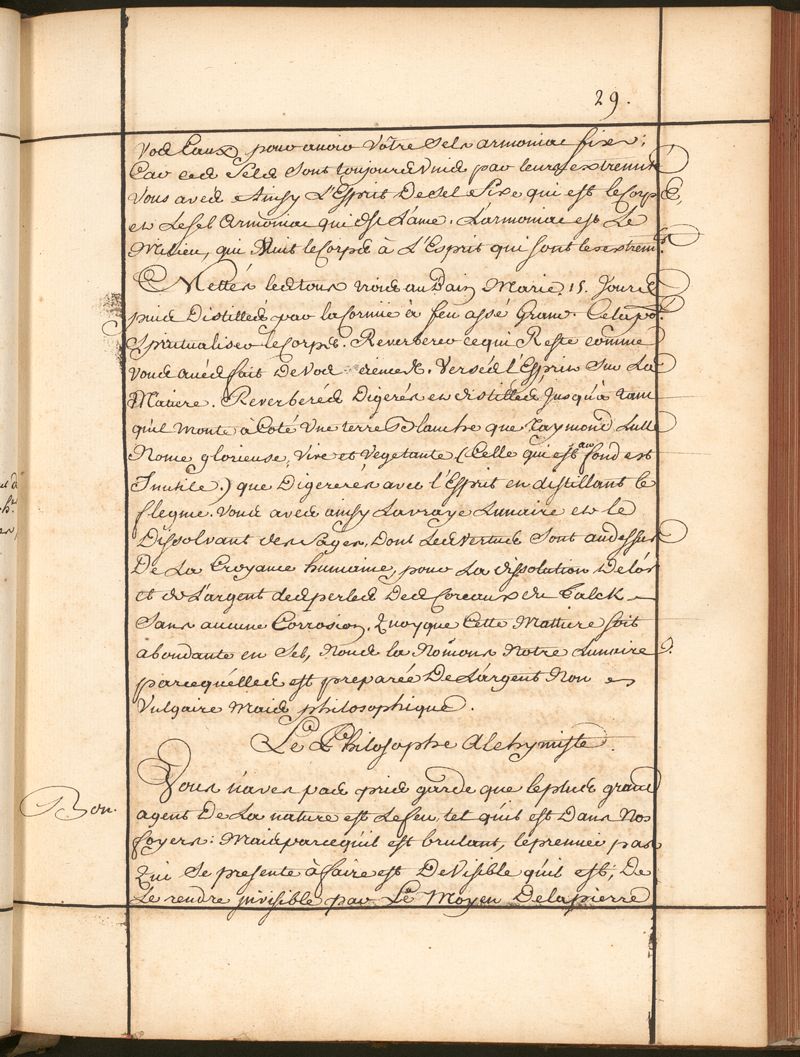 29.
Vos Eaux, pour avoir Vôtre Sel armoniac fixe;
Car ces Sels sont toujours Unis par leurs extremités
Vous avés Ainsy L'Esprit De sel Fixe qui est le Corps,
et Le sel Armoniac qui est L'ame. L'armoniac est Le
Milieu, qui Unit le Corps à L'Esprit qui sont les extrem.es
Mettés les tous trois au Bain Marie, 15. Jours
puis Distillés par la Cornue à feu assé Grand. Cela po.r
Spiritualiser le Corps. Reverberer ce qui Reste comme
vous avés fait De Vos Versés l'Esprit Sur La
Matiere. Reverberés Digerés et distillés Jusqu'à tant
quil Monte à Coté Une terre Blanche que Raymond Lulle
Nome glorieuse, Vive et Vegetante (Celle qui est au fond est
Inutile.) que Digererés avec l'Esprit en distillant le
flegme. Vous avés ainsy La vraye Lunaire et le
Dissolvant des Sages, Dont Les Vertus Sont au dessus
De La Croyance humaine, pour La dissolution De l'or
et de L'argent des perles Des Coreaux du Talck
Sans aucune Corrosion. Quoyque Cette Mattiere soit
abondante en Sel, Nous la Nomons Notre Lunaire,
parcequ'elles est preparée De L'argent Non
Vulgaire Mais philosophique.
Le Philosophe Alchymiste.
Bon.
Vous n'aves pas pris garde que le plus grand
agent De La nature est Le feu, tel quil est Dans Nos
foyers: Mais parcequ'il est brulant, le premier pas
Qui Se presente à faire est De Visible quil est, De
Le rendre jnvisible par Le Moyen De la pierre